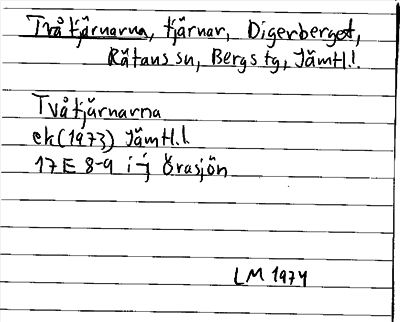 Tvåtjärnarna, tjärnar, Digerberget,
Rätans sn, Bergs tg, Jämtl.l.
Tvåtjärnarna
ek (1973) Jämtl.l.
17E 8-9 i-j Örasjön
LM 1974